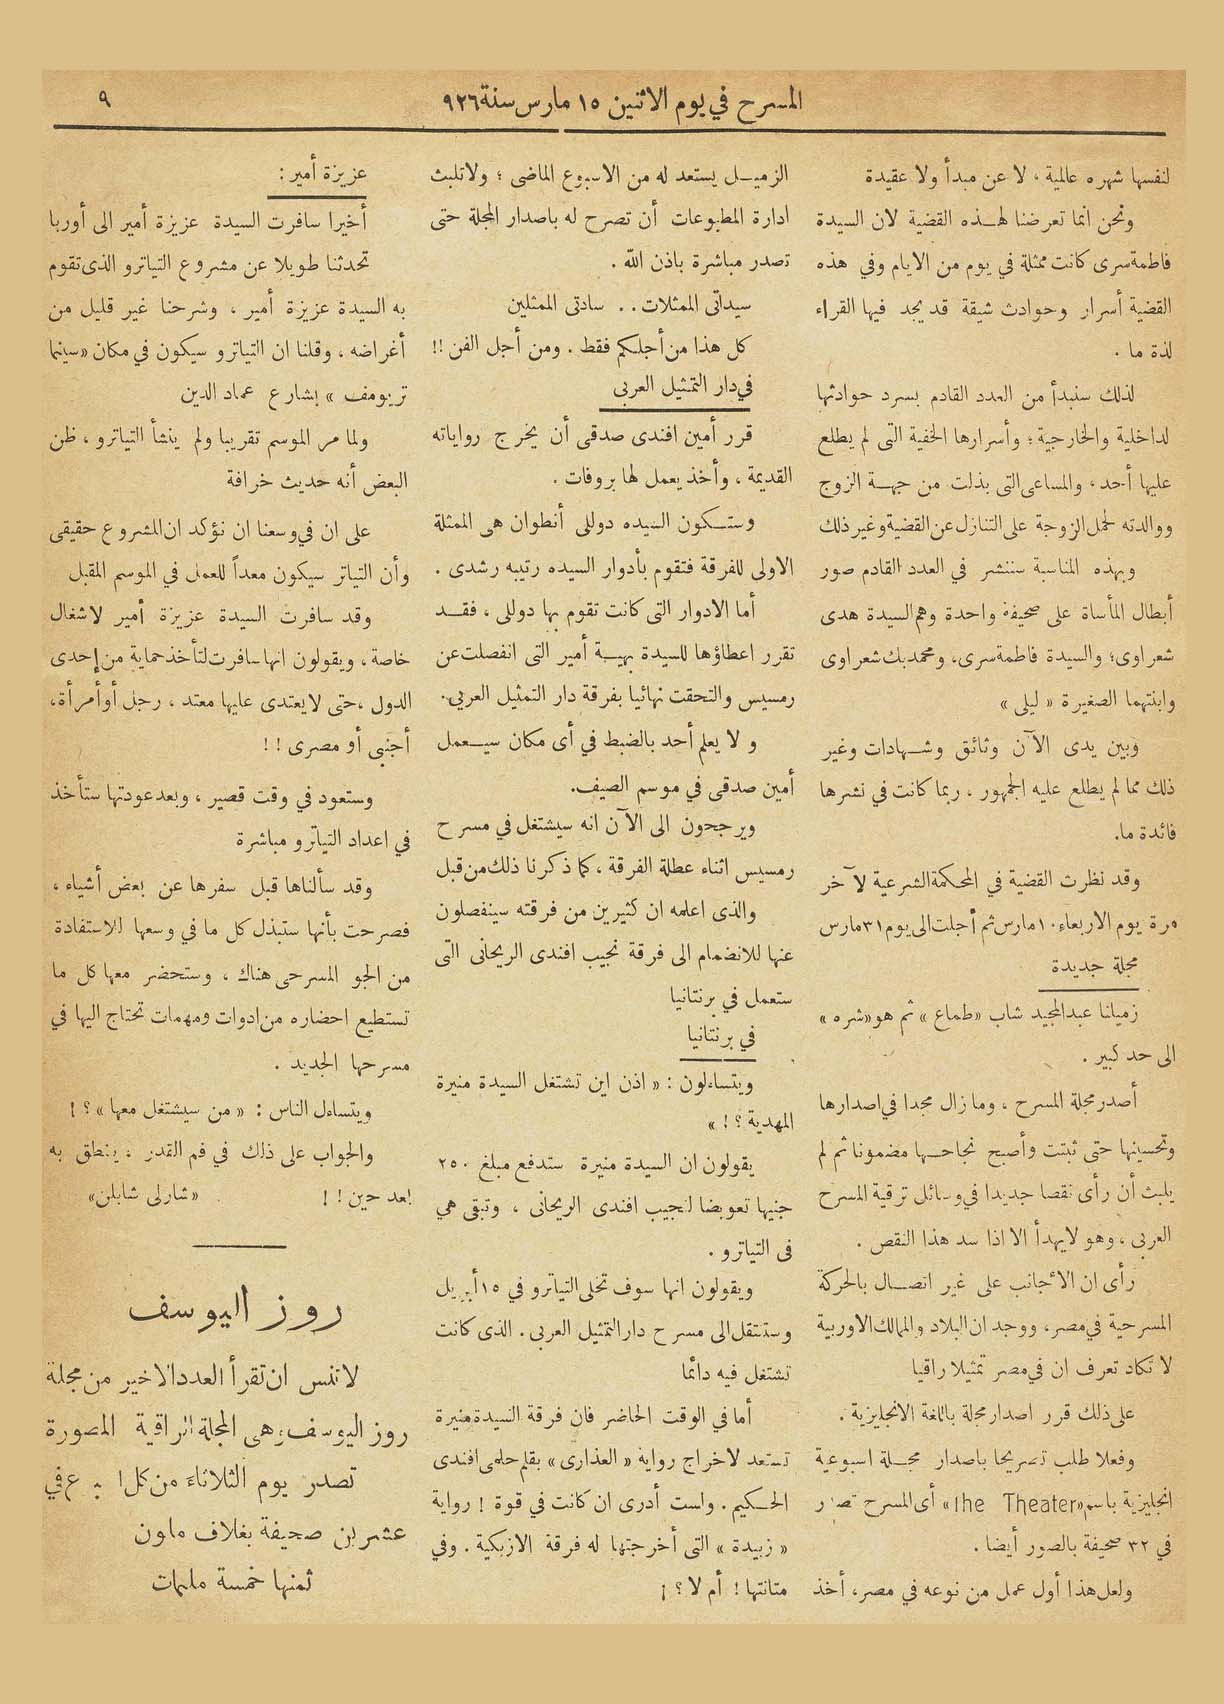 المسرح في يوم الاثنين ١٥ مارس سنة ٩٢٦
٩
لنفسها شهره عالمية ، لا عن مبدأ ولا عقيدة
ونحن انما تعرضنا لهذه القضية لان السيدة
فاطمة سرى كانت ممثلة في يوم من الايام وفي هذه
القضية أسرار وحوادث شيقة قد يجد فيها القراء
لذة ما .
لذلك سنبدأ من العدد القادم بسرد حوادثها
لداخلية والخارجية ؛ وأسرارها الخفية التى لم يطلع
عليها أحد ، والمساعى التى بذلت من جهة الزوج
ووالدته لحمل الزوجة على التنازل عن القضية وغير ذلك
وبهذه المناسبة سننشر في العدد القادم صور
أبطال المأساة على صحيفة واحدة وهم السيدة هدى
شعراوى ؛ والسيدة فاطمة سرى، ومحمد بك شعراوى
وابنتهما الصغيرة « ليلى »
وبين يدى الآن وثائق وشهادات وغير
ذلك مما لم يطلع عليه الجمهور ، ربما كانت في نشرها
فائدة ما.
وقد نظرت القضية في المحكمة الشرعية لآخر
مرة يوم الاربعاء ١٠ مارس ثم أجلت الى يوم ٣١ مارس
مجلة جديدة
زميلنا عبد المجيد شاب « طماع » ثم هو « شره »
الى حد كبير .
أصدر مجلة المسرح ، وما زال مجدا في اصدارها
وتحسينها حتى ثبتت وأصبح نجاحها مضمونا ثم لم
يلبث أن رأى نقصا جديدا في وسائل ترقية المسرح
العربى ، وهو لا يهدأ الا اذا سد هذا النقص .
رأى ان الاجانب على غير اتصال بالحركة
المسرحية في مصر، ووجد ان البلاد والممالك الاوربية
لا تكاد تعرف ان في مصر تمثيلا راقيا
على ذلك قرر اصدار مجلة باللغة الانجليزية .
وفعلا طلب تصريحا باصدار مجلة اسبوعية
انجليزية باسم «The Theater» أى المسرح تصدر
في ٣٢ صحيفة بالصور أيضا .
ولعل هذا أول عمل من نوعه في مصر، أخذ
الزميل يستعد له من الاسبوع الماضى ؛ ولا تلبث
ادارة المطبوعات أن تصرح له باصدار المجلة حتى
تصدر مباشرة باذن الله .
سيداتى الممثلات . . سادتى الممثلين
كل هذا من أجلكم فقط . ومن أجل الفن !!
في دار التمثيل العربى
قرر أمين افندى صدقى أن يخرج رواياته
القديمة ، وأخذ يعمل لها بروفات .
وستكون السيده دوللى أنطوان هى الممثلة
الاولى للفرقة فتقوم بأدوار السيده رتيبه رشدى .
أما الادوار التى كانت تقوم بها دوللى ، فقد
تقرر اعطاؤها للسيدة بهية أمير التى انفصلت عن
رمسيس والتحقت نهائيا بفرقة دار التمثيل العربى.
و لا يعلم أحد بالضبط في أى مكان سيعمل
أمين صدقى في موسم الصيف.
ويرجحون الى الآن انه سيشتغل في مسرح
رمسيس اثناء عطلة الفرقة ، كما ذكرنا ذلك من قبل
والذى اعلمه ان كثيرين من فرقته سينفصلون
عنها للانضمام الى فرقة نجيب افندى الريحانى التى
ستعمل في برنتانيا
في برنتانيا
ويتساءلون : « اذن اين تشتغل السيدة منيرة
المهدية ؟ ! »
يقولون ان السيدة منيرة ستدفع مبلغ ٢٥٠
جنيها تعويضا لنجيب افندى الريحانى ، وتبقى هي
فى التياترو .
ويقولون انها سوف تخلى التياترو في ١٥ أبريل
وستنتقل الى مسرح دار التمثيل العربى . الذى كانت
تشتغل فيه دائما
أما في الوقت الحاضر فان فرقة السيدة منيرة
تستعد لاخراج رواية « العذارى » بقلم حلمى افندى
الحكيم . ولست أدرى ان كانت في قوة ! رواية
« زبيدة » التى أخرجتها له فرقة الازبكية . وفي
متانتها ! أم لا ؟ !
عزيزة أمير :
أخيرا سافرت السيدة عزيزة أمير الى أوربا
تحدثنا طويلا عن مشروع التياترو الذى تقوم
به السيدة عزيزة أمير ، وشرحنا غير قليل من
أغراضه ، وقلنا ان التياترو سيكون في مكان « سينما
تريومف » بشارع عماد الدين
ولما مر الموسم تقريبا ولم ينشأ التياترو ، ظن
البعض أنه حديث خرافة
على ان في وسعنا ان نؤكد ان المشروع حقيقى
وأن التياتر سيكون معداً للعمل في الموسم المقبل
وقد سافرت السيدة عزيزة أمير لاشغال
خاصة ، ويقولون انها سافرت لتأخذ حماية من إحدى
الدول ، حتى لا يعتدى عليها معتد ، رجل أو أمرأة ،
أجنبى أو مصرى ! !
وستعود في وقت قصير ، وبعد عودتها ستأخذ
في اعداد التياترو مباشرة
وقد سألناها قبل سفرها عن بعض أشياء ،
فصرحت بأنها ستبذل كل ما في وسعها للاستفادة
من الجو المسرحى هناك ، وستحضر معها كل ما
تستطيع احضاره من ادوات ومهمات تحتاج اليها في
مسرحها الجديد .
ويتساءل الناس : « من سيشتغل معها » ؟ !
والجواب على ذلك في فم القدر ، ينطق به
بعد حين ! ! «شارلى شابلن»
روز اليوسف
لا تنس ان تقرأ العدد الاخير من مجلة
روز اليوسف وهى المجلة الراقية المصورة
تصدر يوم الثلاثاء من كل في
عشرين صحيفة بغلاف ملون
ثمنها خمسة مليمات